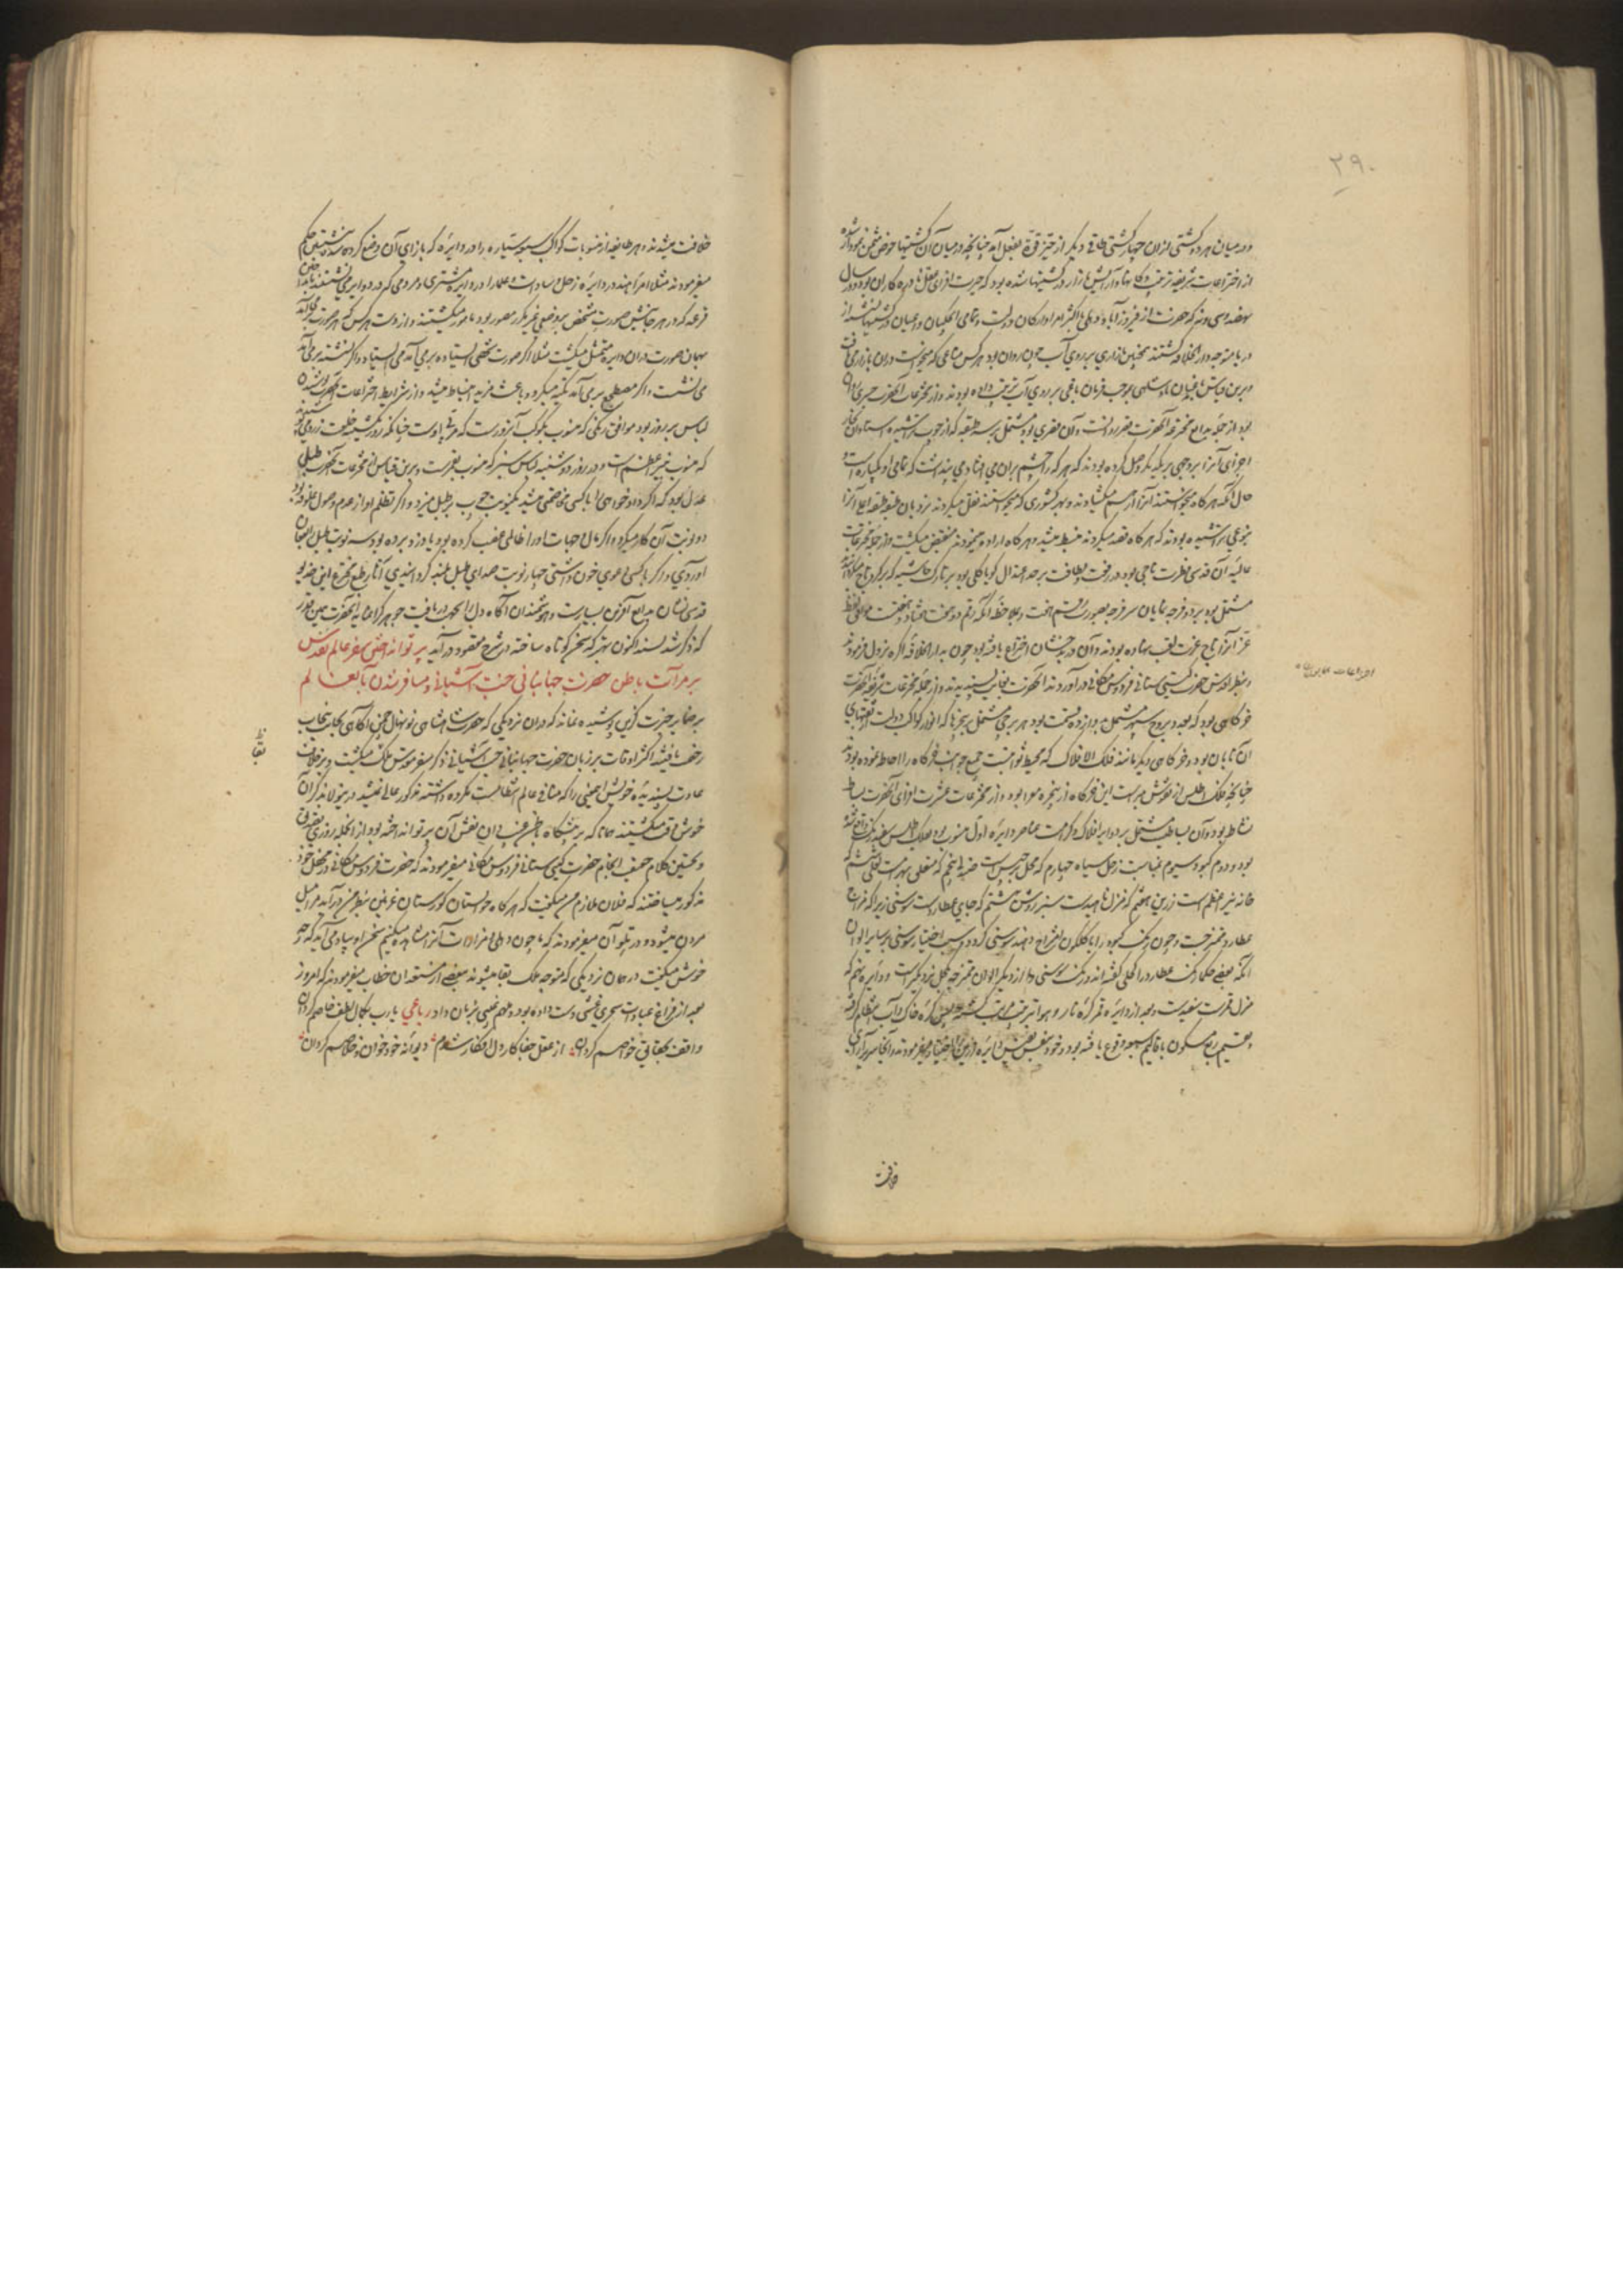 ۲۹۰
و در میان هر دو کشتی ازان چهار کشتی طاقی دیگر از حیز قوة بفعل آمد چنانچه در میان آن کشتیها حوض مثمن نمودار شده
از اختراعات شریفه ترتیب دکانها و آرایش بازار در کشتیها شده بود که حیرت افزای عقل نادره کاران بود و در سال
نهصد و سی و نه که حضرت از فیروزآباد دهلی با اکثر امرا و ارکان دولت و تمامی اهل کمان و اعیان در کشتیها نشسته از
دریا متوجه دارالخلافه گشتند همچنین بازاری بر روی آب جون روان بود هر کس متاعی که میخواست دران بازار می یافت
و برین قیاس باغبانان پادشاهی بموجب فرمان باغی بر روی آب ترتیب داده بودند و از مخترعات آنحضرت جسری روان
بود از جمله بدایع مخترعه آنحضرت قصر روانست و آن قصری بود مشتمل بر سه طبقه که از چوب تراشیده استادان نجار
اجزای آنرا بروجهی بیکدیگر وصل کرده بودند که هر که را چشم بران می افتاد می پنداشت که تمامی او یکپاره است و
حال آنکه هر گاه میخواستند آنرا از هم میگشادند و بهر کشوری که میخواستند نقل میکردند و نردبان طبقه طبقه اعلی آنرا
بنوعی تراشیده بودند که هر گاه قصد میکردند منبسط میشد و هر گاه اراده مینمودند منقبض میگشت و از جمله مخترعات
عالیه آن قدسی فطرت تاجی بود در رفعت و لطافت بر حد اعتدال
مشتمل بود بر دو فرجه نمایان هر فرجه بصورت رقم هفت و بملاحظه آنکه رقم دو هفت هفتاد و هفت موافق لفظ
عز آنرا تاج عزت لقب نهاده بودند و آن در بدخشان اختراع یافته بود چون بدارالخلافه آگره نزول فرمودند
بنظر اقدس حضرت گیتی ستانی فردوس مکانی درآوردند آنحضرت بغایت پسندیدند و از جمله مخترعات شریفه آنحضرت
خرگاهی بود که بعدد بروج سپهر مشتمل بر دوازده قسمت بود هر برجی مشتمل بر پنجرها که انوار کواکب دولت از ثقبهای
آن تابان بود و خرگاهی دیگر مانند فلک الافلاک که محیط ثوابتست جمیع جوانب خرگاه را احاطه نموده بود
چنانچه فلک اطلس از نقوش مبراست این خرگاه از پنجره معرا بود و از مخترعات عشرت افزای آنحضرت بساط
نشاط بود و آن بساطیست مشتمل بر دوایر افلاک و کرات عناصر دایره اول منسوب بود بفلک اطلس سفید رنگ واقع شده
بود و دوم کبود و سیوم بمناسبت زحل سیاه چهارم که محل برجیس است صندلی پنجم که متعلق ببهرامست لعلی ششم که
خانه نیر اعظم است زرین هفتم که منزل ناهیدست سبز روشن هشتم که جای عطاردست سوسنی زیرا که مزاج
عطارد ممتزجست و چون رنگ کبود را با گلگون امتزاج دهند سوسنی گردد و سبب اختیار سوسنی بر سایر الوان
آنکه بعضی حکما رنگ عطارد را کحلی گفته اند و رنگ سوسنی از دیگر الوان ممتزجه بکحلی نزدیکترست و دایره نهم که
منزل قمرست سفیدست و بعد از دایره قمر کره نار و هوا بترتیب مرتب گشته پس کره خاک و آب انتظام گرفته
و تقسیم ربع مسکون باقالیم سبعه وقوع یافته بود و خود بنفس نفیس دایره زرین اختیار میفرمودند و آنجا سریرآرای
خلافت
اختراعات همایون
خلافت میشدند و هر طایفه از منسوبات کواکب سبعه سیاره را در دایره که بازای آن وضع کرده شده بود نشستن حکم
میفرمودند مثلا امراء هند در دایره زحل و سادات و علما را در دایره مشتری و مردمی که در دوایر می نشستند
قرعه که در هر جانبش صورت شخص بوضعی غیر مکرر مصور بود مامور میگشتند و از دست هر کس که هر صورت که می آمد
بهمان صورت دران دایره متمثل میگشت مثلا اگر صورت شخصی ایستاده برمی آمد می ایستاد و اگر نشسته برمی آمد
می نشست و اگر مضطجع برمی آمد تکیه میکرد و باعث مزید انبساط میشد و از شرایف اختراعات آنحضرت پوشیدن
لباس هر روز بود موافق رنگی که منسوب بکوکب آنروزست که مربی اوست چنانکه در روز یکشنبه خلعت زرد می پوشیدند
که منسوب نیر اعظم است و در روز دوشنبه لباس سبز که منسوب بقمرست و برین قیاس از مخترعات آنحضرت طبل
عدل بود که اگر دادخواهی را با کسی مخاصمتی میشد یکنوبت چوب بر طبل میزد و اگر تظلم او از عدم وصول علوفه بود
دو نوبت آن کار میکرد و اگر مال و جهات او را ظالمی غصب کرده بود یا دزد برده بود سه نوبت طبل را بفغان
آوردی و اگر با کسی دعوی خون داشتی چهار نوبت صدای طبل بلند گردانیدی آثار طبع مخترع این خدیو
قدسی نشان بدایع آفرین بسیارست و هوشمندان آگاه دل را بجهت دریافت جوهر گرانمایه آنحضرت همین قدر
که ذکر شد بسند اکنون بهتر که سخن کوتاه ساخته در شرح مقصود درآید پرتو انداختن سفر عالم تقدس
بر مرآت باطن حضرت جهانبانی جنت آشیانی و مسافر شدن بآنعالم
بر ضمایر عبرت گزین پوشیده نماند که دران نزدیکی که حضرت شاهنشاهی نونهال چمن آگاهی بجانب پنجاب
رخصت یافتند اکثر اوقات بر زبان حضرت جهانبانی جنت آشیانی ذکر سفر مقدس ملک میگشت و برخلاف
عادت پسندیده خویش اجمعنی را که منافی عالم انتظامست مکروه داشته مذکور عالی نمیشد درینولا بذکر آن
خوشوقت میگشتند همانا که بر پیشگاه باطن غیب دان نقش آن پرتو انداخته بود از انجمله روزی بتقریبی
و تحسین کلام حقیقت انجام حضرت گیتی ستانی فردوس مکانی میفرمودند که حضرت فردوس مکانی در محفل خود
مذکور میساختند که فلان ملازم من میگفت که هر گاه خوابستان گورستان غزنین بنظر من درآید مرا میل
مردن میشود و در تلو آن میفرمودند که ما چون دهلی و مزارات آنرا مشاهده میکنیم سخن او بیاد می آید که چه
خوش میگفت در همان نزدیکی که متوجه ملک بقا میشوند ببعضی از مستعدان خطاب میفرمودند که امروز
بعد از فراغ عبادات سحری غیبتی دست داده بود و ملهم غیبی بزبان داد رباعی یا رب بکمال لطف خاصم گردان
واقف بحقایق خواصم گردان از عقل جفاکار دل افگار شدم دیوانه خود خوان و خلاصم گردان
بقا